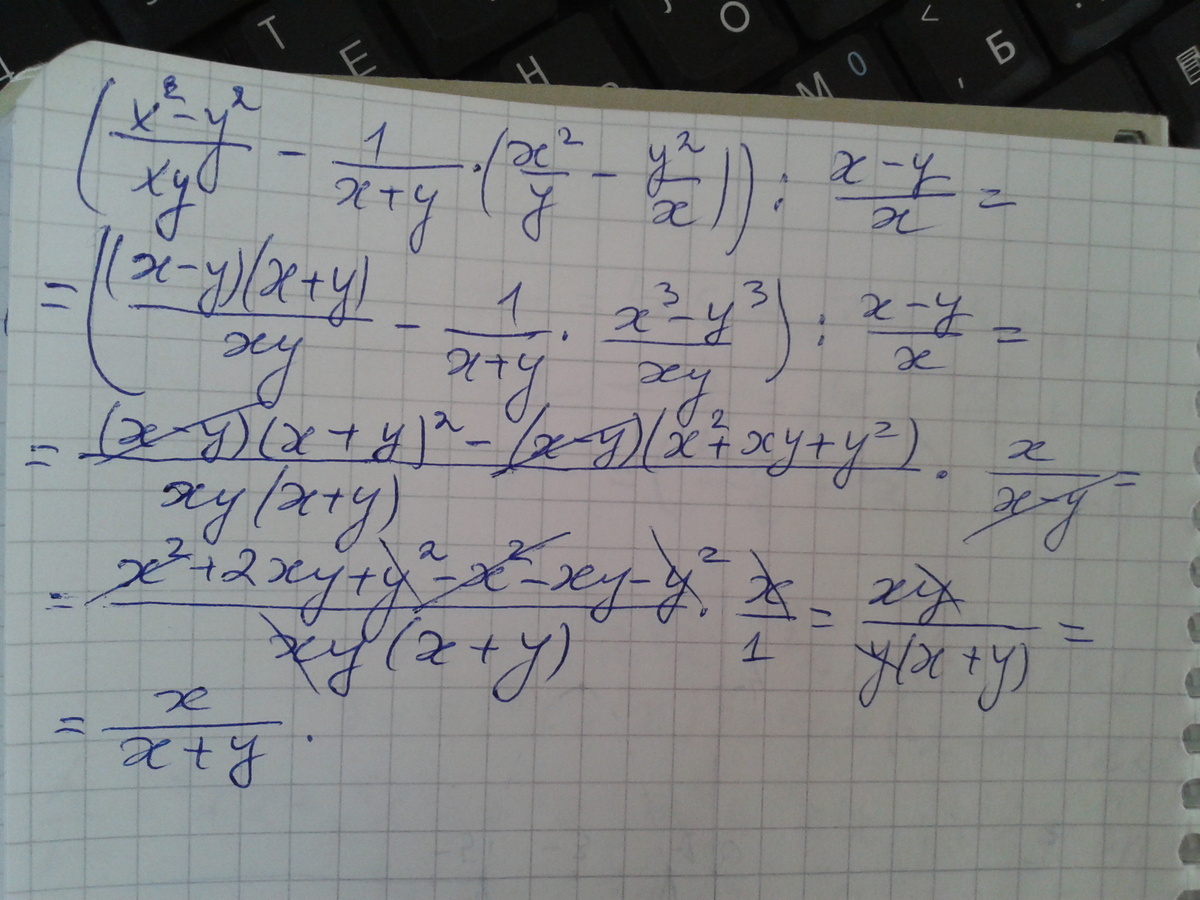 Т Е Н О М О < , Б
(x²-y²/xy - 1/x+y · (x²/y - y²/x)) : x-y/x =
= ((x-y)(x+y)/xy - 1/x+y · x³-y³/xy) : x-y/x =
= (x-y)(x+y)²-(x-y)(x²+xy+y²)/xy(x+y) · x/x-y =
= x²+2xy+y²-x²-xy-y²/xy(x+y) · x/1 = xy/y(x+y) =
= x/x+y .